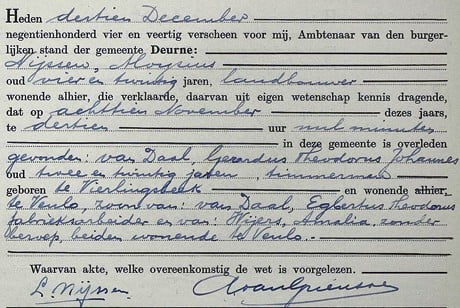 Heden dertien December
negentienhonderd vier en veertig verscheen voor mij, Ambtenaar van den burger-
lijken stand der gemeente Deurne:
Nijssen, Aloysius
oud vier en twintig jaren, landbouwer
wonende alhier, die verklaarde, daarvan uit eigen wetenschap kennis dragende,
dat op achttien November dezes jaars,
te dertien uur nul minuten
in deze gemeente is overleden
gevonden: van Daal, Gerardus Theodorus Johannes
oud twee en twintig jaren, timmerman
geboren te Vierlingsbeek en wonende alhier,
te Venlo, zoon van: van Daal, Egbertus Theodorus
fabrieksarbeider en van: Wijers, Amalia, zonder
beroep, beiden wonende te Venlo.
Waarvan akte, welke overeenkomstig de wet is voorgelezen.
L. Nijssen